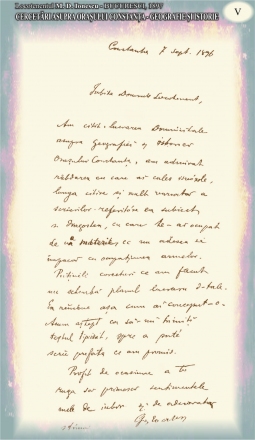 Locotenentul M. D. Ionescu - BUCURESCI, 1897
CERCETĂRI ASUPRA ORAȘULUI CONSTANȚA - GEOGRAFIE ȘI ISTORIE
V
Constantza 7 Sept. 1896
Iubite Domnule Locotenent,
Am citit lucrarea Dumnitale
asupra Geografiei și Istoriei
Orașului Constantza, am admirat
răbdarea cu care ai cules
lunga citire și mult
scrierilor referitóre la subiect
și Dragostea, cu care te-ai ocupat
de materie, ce nu adesea se
împacă cu armelor.
Puținele corecturi ce am făcut
nu schimbă planul lucrărei D-tale.
Ea rămâne așa cum ai conceput-o.
Acum aștept ca să-mi trimiți
textul tipărit, spre a puté
scrie prefața ce am promis.
Profit de ocasiune a te
ruga să primesci sentimentele
mele de iubire și de